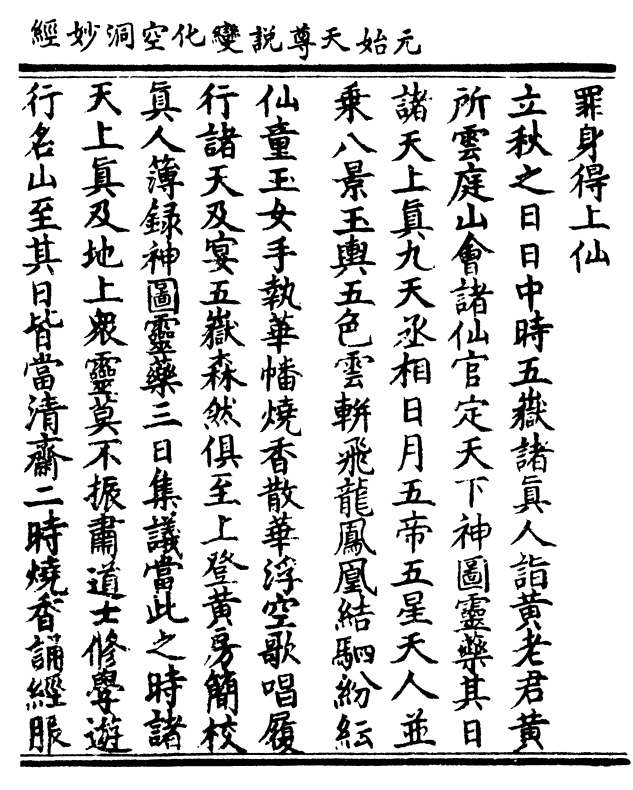 元始天尊說變化空洞妙經
罪身得上仙
立秋之日日中時五嶽諸眞人詣黃老君黃
所雲庭山會諸仙官定天下神圖靈藥其日
諸天上眞九天丞相日月五帝五星天人並
乘八景玉輿五色雲軿飛龍鳳凰結駟紛紜
仙童玉女手執華幡燒香散華浮空歌唱履
行諸天及宴五嶽森然俱至上登黃房簡校
眞人薄錄神圖靈藥三日集議當此之時諸
天上眞及地上衆靈莫不振肅道士修學遊
行名山至其日皆當清齋二時燒香誦經服